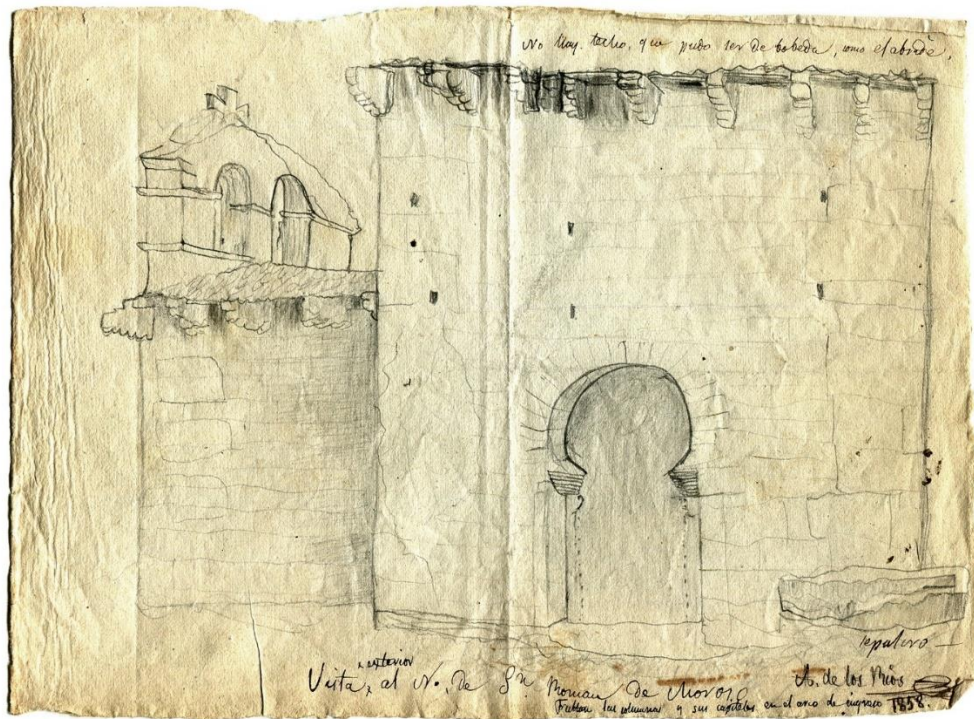 No hay techo, que pudo ser de bobeda, como el abside.
sepulcro —
Vista exterior al No. de Sn. Roman de Moroso
A. de los Rios
Faltan las columnas y sus capiteles en el arco de ingreso 1858.